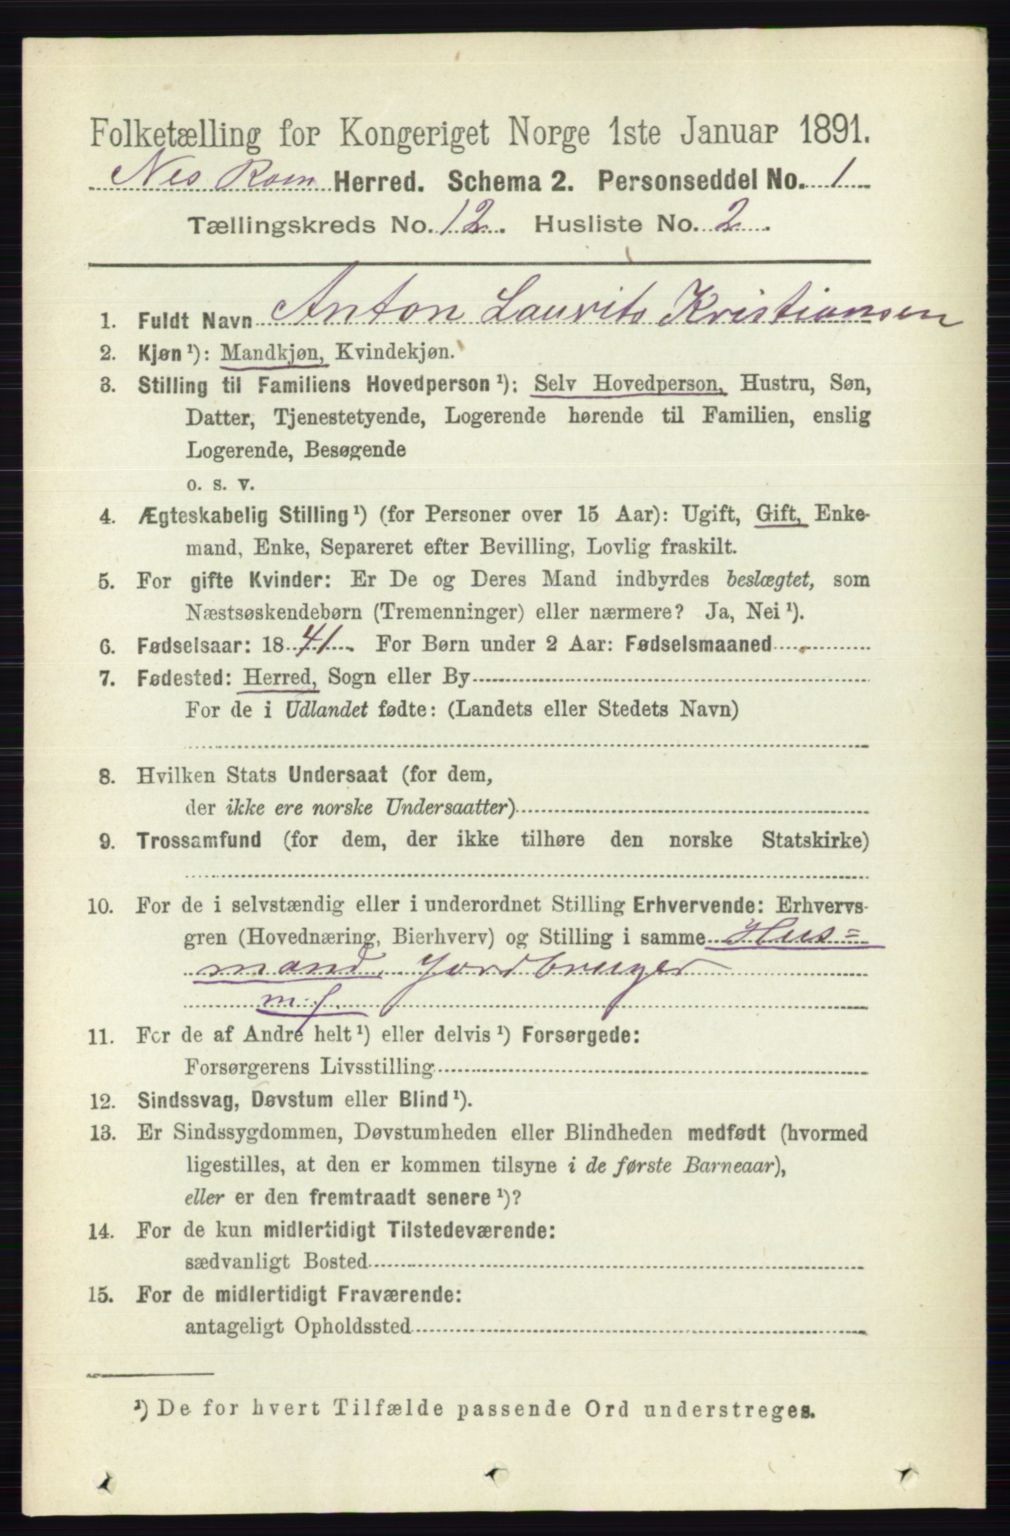 Folketælling for Kongeriget Norge 1ste Januar 1891.
Nes Rom Herred. Schema 2. Personseddel No. 1
Tællingskreds No. 12. Husliste No. 2.
1. Fuldt Navn Anton Laurits Kristiansen
2. Kjøn ¹): Mandkjøn, Kvindekjøn.
3. Stilling til Familiens Hovedperson ¹): Selv Hovedperson, Hustru, Søn,
Datter, Tjenestetyende, Logerende hørende til Familien, enslig
Logerende, Besøgende
o. s. v.
4. Ægteskabelig Stilling ¹) (for Personer over 15 Aar): Ugift, Gift, Enke-
mand, Enke, Separeret efter Bevilling, Lovlig fraskilt.
5. For gifte Kvinder: Er De og Deres Mand indbyrdes beslægtet, som
Næstsøskendebørn (Tremenninger) eller nærmere? Ja, Nei ¹).
6. Fødselsaar: 1841. For Børn under 2 Aar: Fødselsmaaned
7. Fødested: Herred, Sogn eller By
For de i Udlandet fødte: (Landets eller Stedets Navn)
8. Hvilken Stats Undersaat (for dem,
der ikke ere norske Undersaatter)
9. Trossamfund (for dem, der ikke tilhøre den norske Statskirke)
10. For de i selvstændig eller i underordnet Stilling Erhvervende: Erhvervs-
gren (Hovednæring, Bierhverv) og Stilling i samme Hus=
mand, Jordbruger
m. f.
11. For de af Andre helt ¹) eller delvis ¹) Forsørgede:
Forsørgerens Livsstilling
12. Sindssvag, Døvstum eller Blind ¹).
13. Er Sindssygdommen, Døvstumheden eller Blindheden medfødt (hvormed
ligestilles, at den er kommen tilsyne i de første Barneaar),
eller er den fremtraadt senere ¹)?
14. For de kun midlertidigt Tilstedeværende:
sædvanligt Bosted
15. For de midlertidigt Fraværende:
antageligt Opholdssted
¹) De for hvert Tilfælde passende Ord understreges.